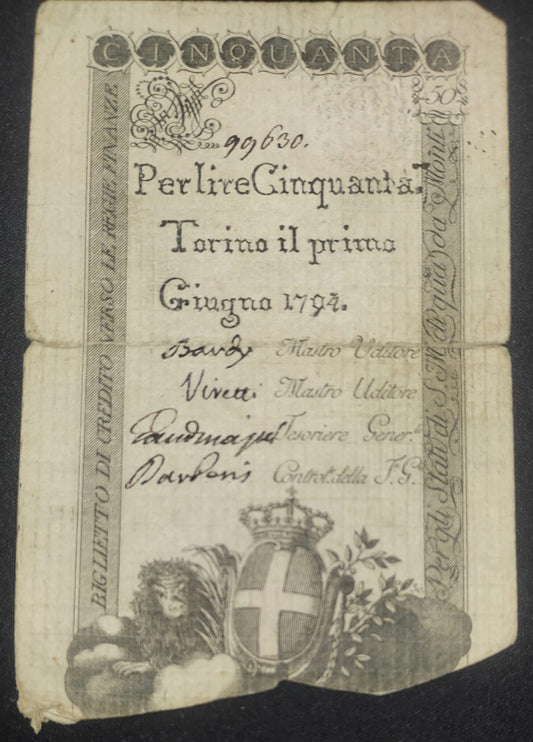 CINQUANTA
50
99630.
Per lire Cinquanta.
Torino il primo
Giugno 1794.
Mastro Uditore
Viretti Mastro Uditore
Tesoriere Gener.le
Barberis Control. della F. G.
BIGLIETTO DI CREDITO VERSO LE REGIE FINANZE
Per gli Stati di S. M. di qua da Monti